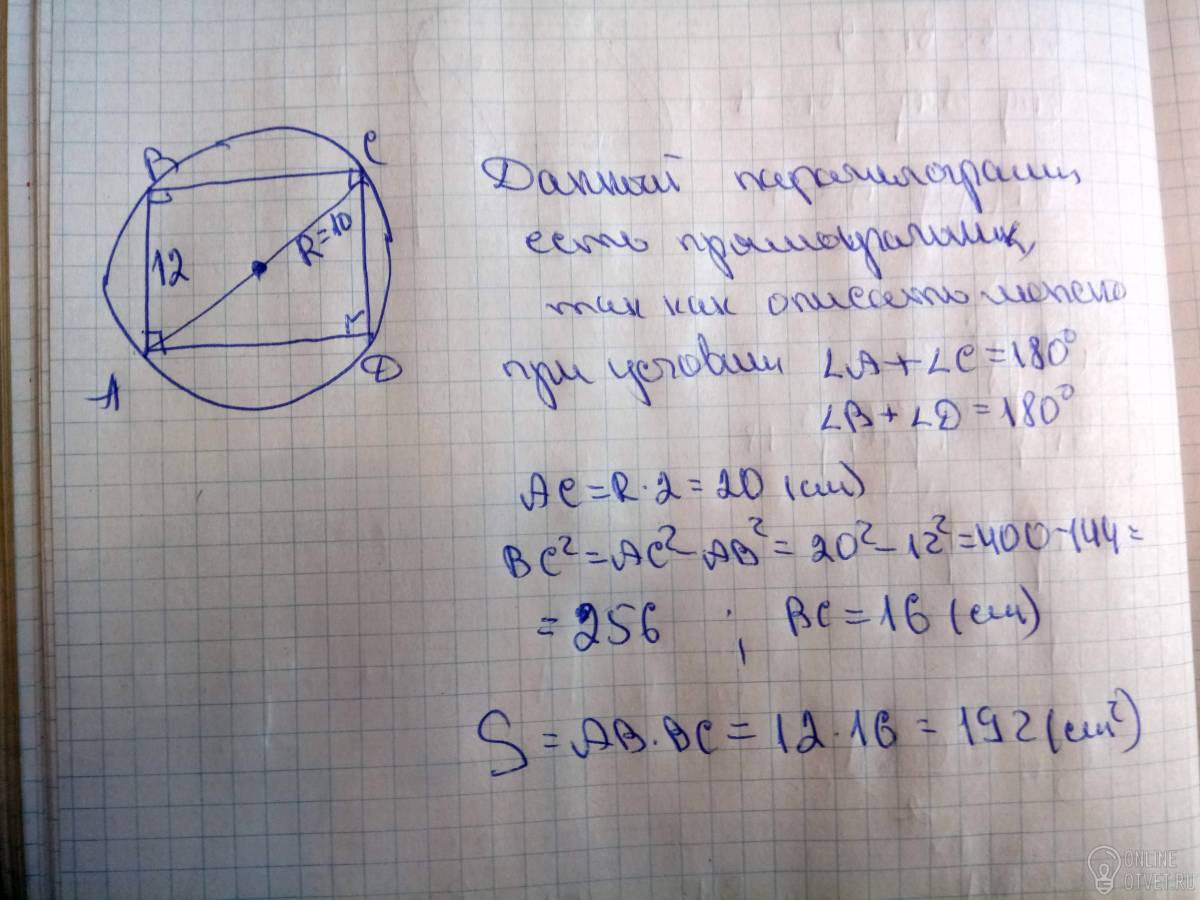 B
C
R=10
12
A
D
Данный параллелограмм,
есть прямоугольник,
так как описать можно
при условии ∠A+∠C=180°
∠B+∠D=180°
AC=R·2=20 (см)
BC²=AC²-AB²=20²-12²=400-144=
=256 ; BC=16 (см)
S=AB·BC=12·16=192(см²)
ONLINE
OTVET.RU